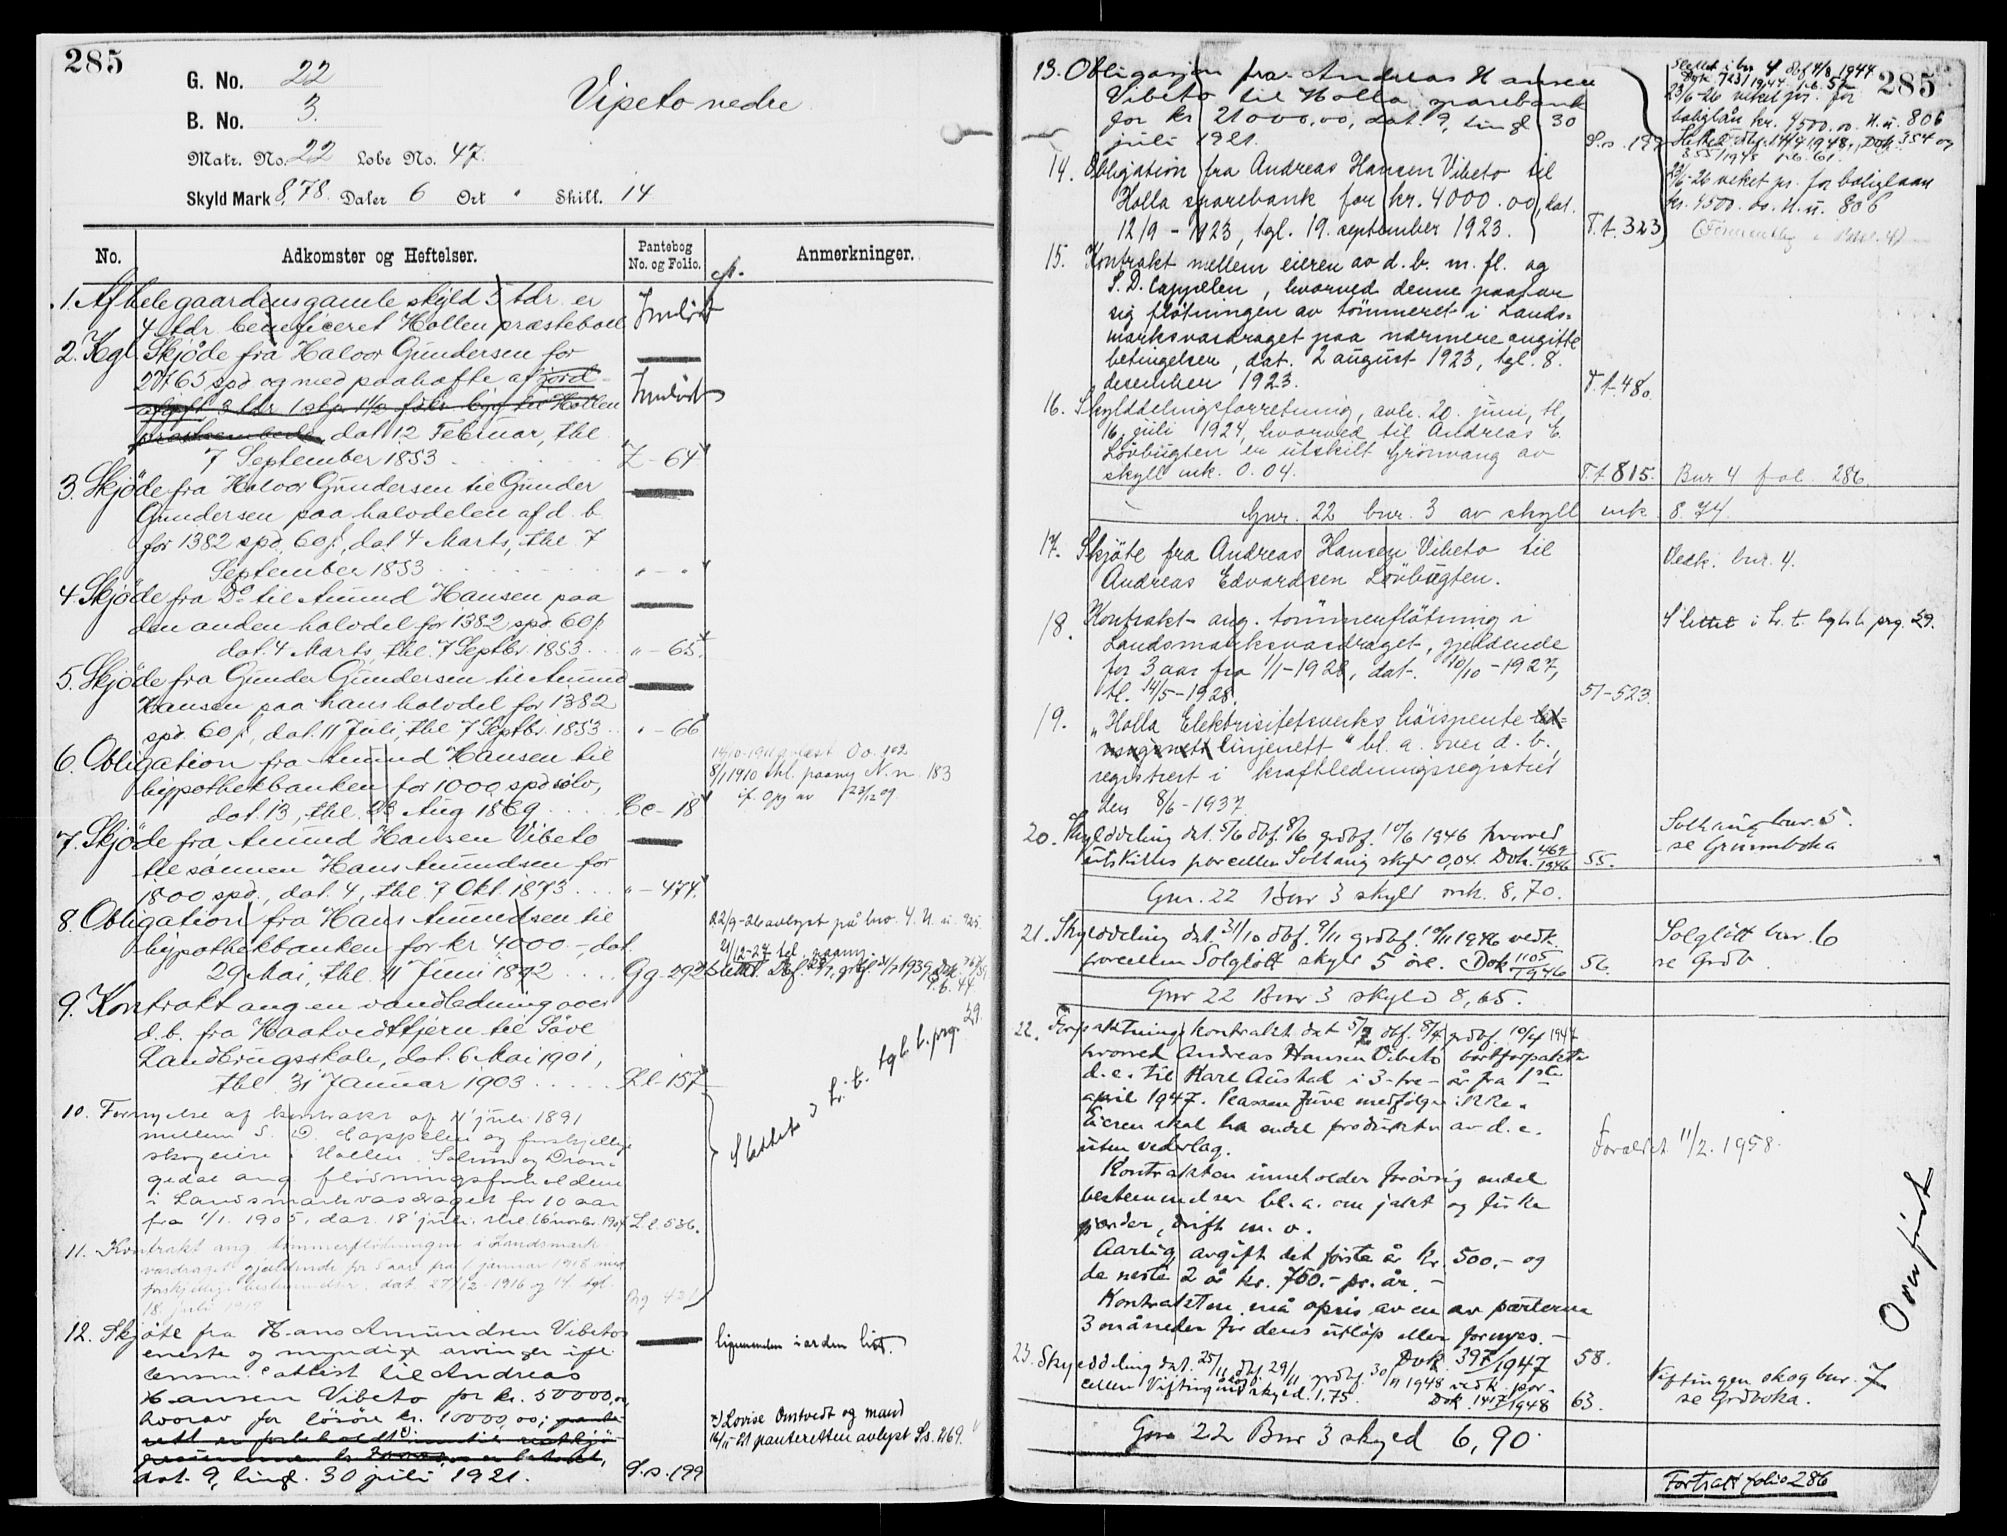 285
G. No. 22
B. No. 3.
Vipeto nedre
Matr. No. 22 Løbe No. 47.
Skyld Mark 8,78. Daler 6 Ort " Skill. 14
No. Adkomster og Heftelser. Pantebog No. og Folio. Anmerkninger.
1. Af hele gaardens gamle skyld 5 tdr. er
4 tdr. beneficeret Hollen præsteboel Innløst
2. Kgl. Skjøde fra Halvor Gundersen for
2765 spd og med paahæfte af jord-
Innløst
dat 12 Februar, thl.
7 September 1853 Z - 64
3. Skjöde fra Halvor Gundersen til Gunder
Gundersen paa halvdelen af d. b.
for 1382 spd. 60 s., dat 4 Marts, thl. 7
September 1853 " - "
4. Skjöde fra Do til Amund Hansen paa
den anden halvdel for 1382 spd 60 s.
dat. 4 Marts, thl. 7 Septbr. 1853 " - 65.
5. Skjöde fra Gunder Gundersen til Amund
Hansen paa hans halvdel for 1382
spd. 60 s., dat. 11 Juli, thl. 7 Septbr. 1853 " - 66
6. Obligation fra Amund Hansen til
hypothekbanken for 1000 spd sölv,
dat. 13, thl. 23 Aug 1869 Cc - 18
8/1 1910 thl. paany N. n. 183
7. Skjöde fra Amund Hansen Vibeto
til sønnen Hans Amundsen for
1800 spd., dat. 4, thl. 7 Okt. 1873 " - 474.
8. Obligation fra Hans Amundsen til
hypothekbanken for kr 4000.-, dat.
29 Mai, thl. 11 Juni 1892 Gg - 292
22/9-26 avlyst på bno. 4. U. u. 925
21/12-27 tgl. paany
9. Kontrakt ang en vandledning over
d. b. fra Haatvedttjern til Söve
Landbrugsskole, dat. 6 Mai 1901,
thl 31 Januar 1903 Ll - 157
Slettet i h. t. tgl. l. prg. 29.
10. Fornyelse af kontrakt af 11 juli 1891
mellem S. D. Cappelen og forskjellige
skogeiere i Hollen, Solum og Dran-
gedal ang flödningsforholdene
i Landsmarkvasdraget for 10 aar
fra 1/1. 1905, dat. 18 juli, thl. 16 novbr. 1904 Ll. 536.
11. Kontrakt ang tömmerflödningen i Landsmark-
vasdraget gjældende for 5 aar fra 1 januar 1918 med
forskjellige bestemmelser, dat. 27/12-1916 og 14 tgl.
12. Skjöte fra Hans Amundsen Vibetos
eneste og myndige arvinger ifl.
attest til Andreas
Hansen Vibeto for kr. 50000,00
hvorav for lösöre kr. 10000,00;
dat. 9, tingl. 30 juli 1921. S. s. 199
x) Lovise Omtvedt og mand
panteretten avlyst S.s. 269.
285
13. Obligasjon fra Andreas Hansen
Vibeto til Holla sparebank
for kr 21000.00, dat. 9, tingl 30
juli 1921. S. s. 199
23/6-26 veket pr. for
boliglån kr. 4500.00 U. u. 806
14. Obligation fra Andreas Hansen Vibeto til
Holla sparebank for kr. 4000.00, dat.
12/9 - 1923, tgl. 19. september 1923. T. t. 323
23/6-26 veket pr. for boliglaan
kr. 4500.00. U. u. 806
15. Kontrakt mellem eieren av d. b. m. fl. og
S. D. Cappelen, hvorved denne paatar
sig flötningen av tömmeret i Lands-
marksvasdraget paa nærmere angitte
betingelser, dat. 2 august 1923, tgl. 8.
desember 1923. T. t. 480
16. Skylddelingsforretning, avh. 20. juni, tl.
16. juli 1924, hvorved til Andreas E.
Lövbugten er utskilt Grönvang av
skyld mk. 0.04. T. t. 815. Bnr 4 fol. 286
Gnr. 22 bnr. 3 av skyld mk 8.74.
17. Skjöte fra Andreas Hansen Vibeto til
Andreas Edvardsen Lövbugten. Vedk. bnr. 4.
18. Kontrakt ang. tömmerflötning i
Landsmarksvasdraget, gjeldende
for 3 aar fra 1/1-1928, dat. 10/10-1927,
tl. 14/5-1928. 51-523.
Slettet i h. t. tgl. l. prg. 29.
19. "Holla Elektrisitetsverks höispente
linjenett" bl. a. over d. b.,
registrert i kraftledningsregistret
den 8/6-1937
20. Skylddeling dat. 5/6 dbf. 8/6 grdbf. 10/6 1946 hvorved
utskilles parcellen Solhaug skyld 0,04. Dok. 469/1946 55.
Solhaug bnr. 5.
se Grunnboka
Gnr. 22 Bnr 3 skyld mk. 8,70.
21. Skylddeling dat. 31/10 dbf. 9/11 grdbf. 12/11 1946 vedk.
porcellen Solglött skyld 5 öre. Dok 1105/1946 56.
Solglött bnr. 6
se Grdb
Gnr 22 Bnr 3 skyld 8,65.
22. Forpaktningskontrakt dat 5/2 dbf. 8/4 grdbf. 10/4 1947
hvorved Andreas Hansen Vibeto bortforpakter
d. e. til Karl Austad i 3-tre- år fra 1ste
april 1947. Plassen Juve medfölger ikke.
Eieren skal ha endel produkter av d. e.
uten vederlag.
Kontrakten inneholder forövrig endel
bestemmelser bl. a. om jakt og fiske
gjerder, drift m. v.
Aarlig avgift det förste år kr. 500,- og
de neste 2 år kr. 750.- pr. år. -
Kontrakten må opsis av en av parterne
3 måneder för dens utlöp eller fornyes. -
Dok. 397/1947 58.
Foreldet 11/2. 1958.
23. Skylddeling dat. 25/11 dbf. 29/11 grdbf. 30/11 1948 vedk. por-
cellen Viftingen skog skyld. 1.75. Dok 1417/1948 63.
Viftingen skog bnr. 7
se Grdboka.
Gnr 22 Bnr 3 skyld 6,90
Overfört
Fortsatt folio 286